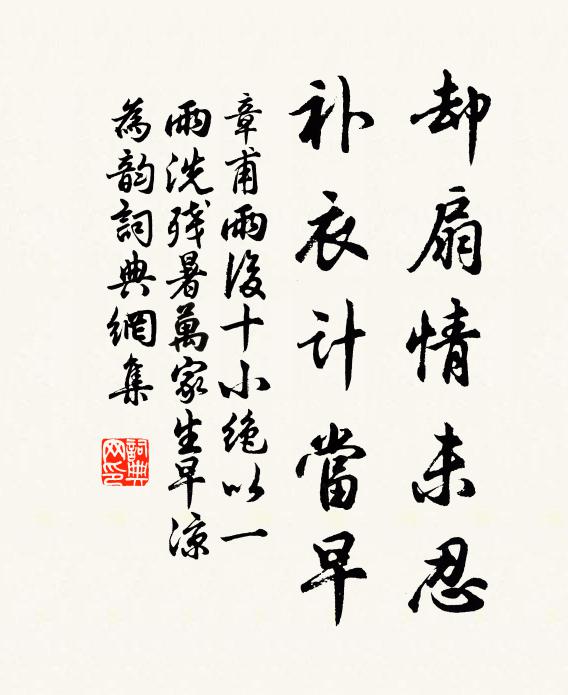 却扇情未忍
补衣计當早
章甫雨後十小绝以一
雨洗残暑萬家生早凉
為韵詞典網集
詞典
网印